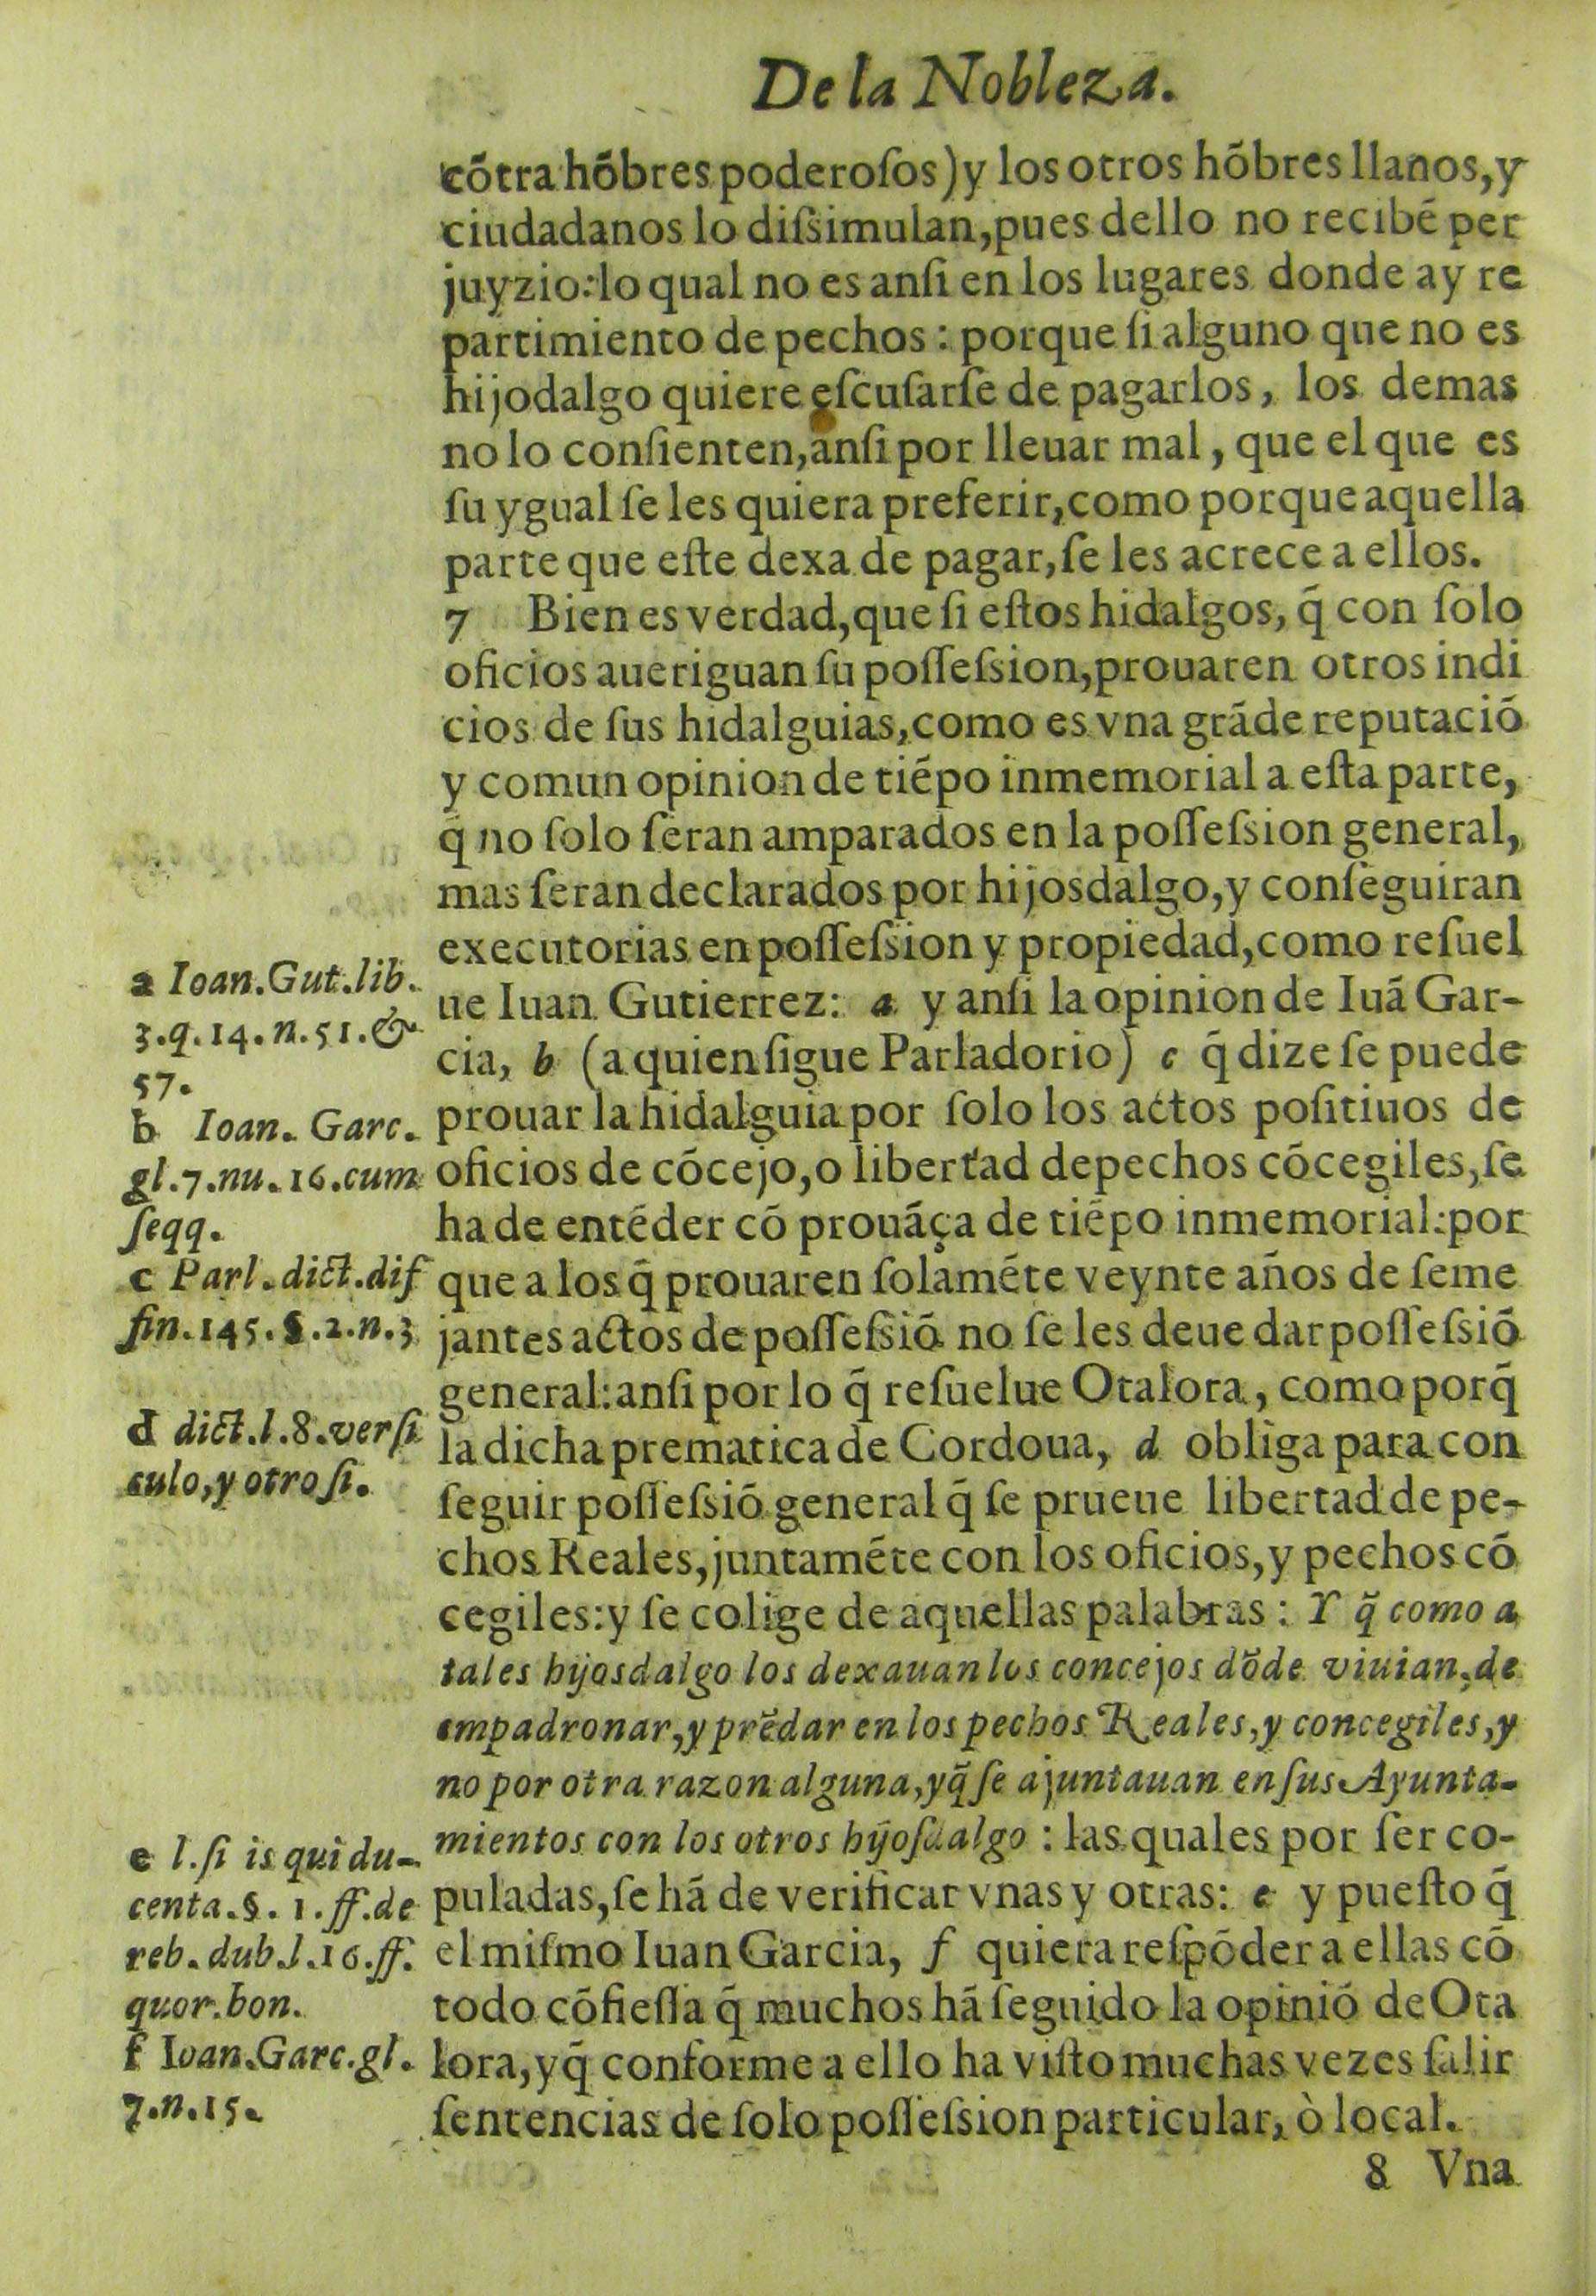 De la Nobleza.
cõtra hõbres poderoſos) y los otros hõbres llanos, y
ciudadanos lo diſsimulan, pues dello no recibẽ per
juyzio: lo qual no es anſi en los lugares donde ay re
partimiento de pechos: porque ſi alguno que no es
hijodalgo quiere eſcuſarſe de pagarlos, los demas
no lo conſienten, anſi por lleuar mal, que el que es
ſu ygual ſe les quiera preferir, como porque aquella
parte que eſte dexa de pagar, ſe les acrece a ellos.
7 Bien es verdad, que ſi eſtos hidalgos, q̃ con ſolo
oficios aueriguan ſu poſſeſsion, prouaren otros indi
cios de ſus hidalguias, como es vna grãde reputaciõ
y comun opinion de tiẽpo inmemorial a eſta parte,
q̃ no ſolo ſeran amparados en la poſſeſsion general,
mas ſeran declarados por hijosdalgo, y conſeguiran
executorias en poſſeſsion y propiedad, como reſuel
ue Iuan Gutierrez: a y anſi la opinion de Iuã Gar-
cia, b (a quien ſigue Parladorio) c q̃ dize ſe puede
prouar la hidalguia por ſolo los actos poſitiuos de
oficios de cõcejo, o libertad de pechos cõcegiles, ſe
ha de entẽder cõ prouãça de tiẽpo inmemorial: por
que a los q̃ prouaren ſolamẽte veynte años de ſeme
jantes actos de poſſeſsiõ no ſe les deue dar poſſeſsiõ
general: anſi por lo q̃ reſuelue Otalora, como porq̃
la dicha prematica de Cordoua, d obliga para con
ſeguir poſſeſsiõ general q̃ ſe prueue libertad de pe-
chos Reales, juntamẽte con los oficios, y pechos cõ
cegiles: y ſe colige de aquellas palabras: Y q̃ como a
tales hijosdalgo los dexauan los concejos dõde viuian, de
empadronar, y prẽdar en los pechos Reales, y concegiles, y
no por otra razon alguna, y q̃ ſe ajuntauan en ſus Ayunta-
mientos con los otros hijoſdalgo: las quales por ſer co-
puladas, ſe hã de verificar vnas y otras: e y pueſto q̃
el miſmo Iuan Garcia, f quiera reſpõder a ellas cõ
todo cõfieſſa q̃ muchos hã ſeguido la opiniõ de Ota
lora, y q̃ conforme a ello ha viſto muchas vezes ſalir
ſentencias de ſolo poſſeſsion particular, ò local.
8 Vna
a Ioan. Gut. lib.
3. q. 14. n. 51. &
57.
b Ioan. Garc.
gl. 7. nu. 16. cum
ſeqq.
c Parl. dict. dif
fin. 145. §. 2. n. 3
d dict. l. 8. verſi
culo, y otro ſi.
e l. ſi is qui du-
centa. §. 1. ff. de
reb. dub. l. 16. ff.
quor. bon.
f Ioan. Garc. gl.
7. n. 15.